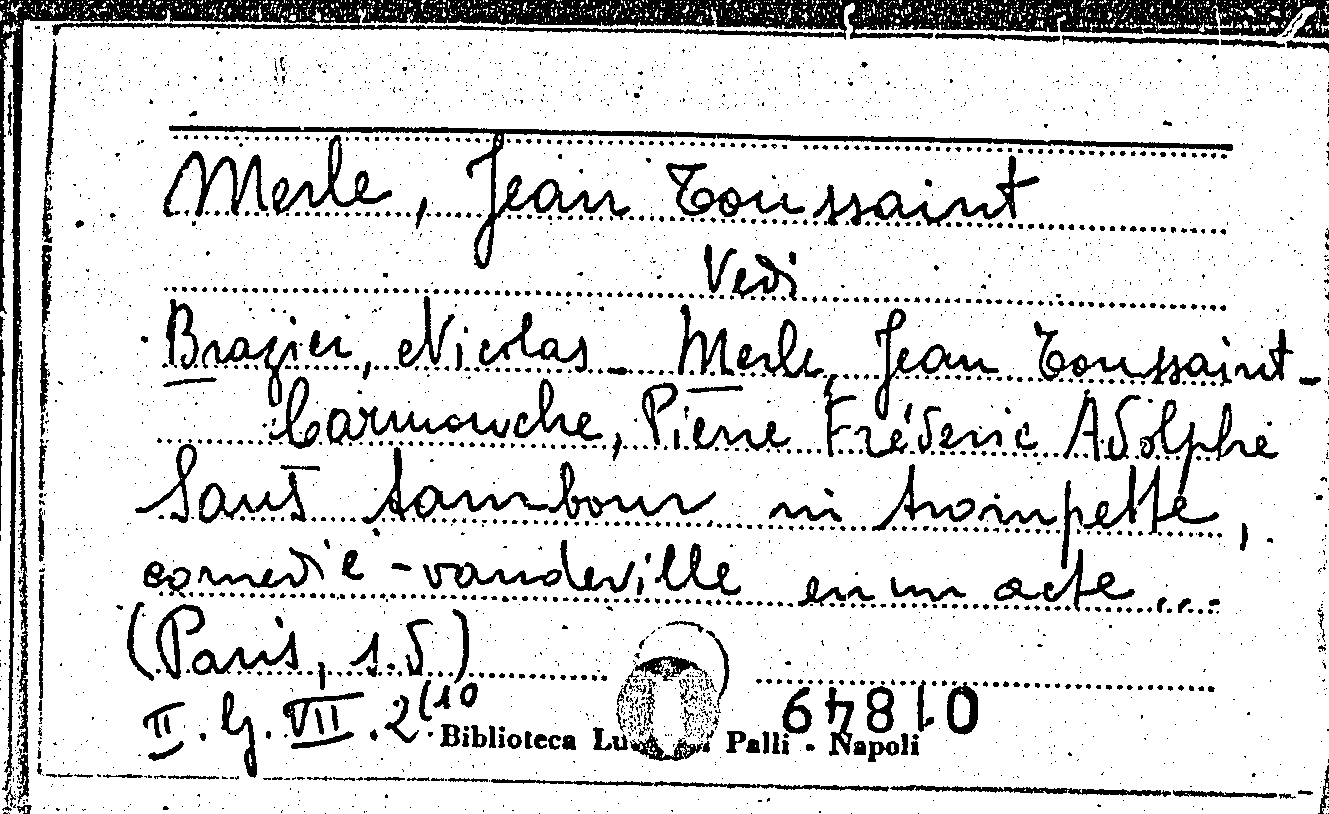 Merle, Jean Toussaint
Vedi
Brazier, Nicolas - Merle, Jean Toussaint -
Carmouche, Pierre Frédéric Adolphe
Sans tambour ni trompette,
comedie-vaudeville en un acte...
(Paris, s.d)
II. G. VII. 2(10
Biblioteca Palli - Napoli
01849